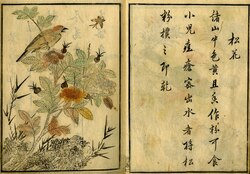 松花
諸山中色黃且香作粉可食
小兒痘瘡出水者將松
粉撲之即乾